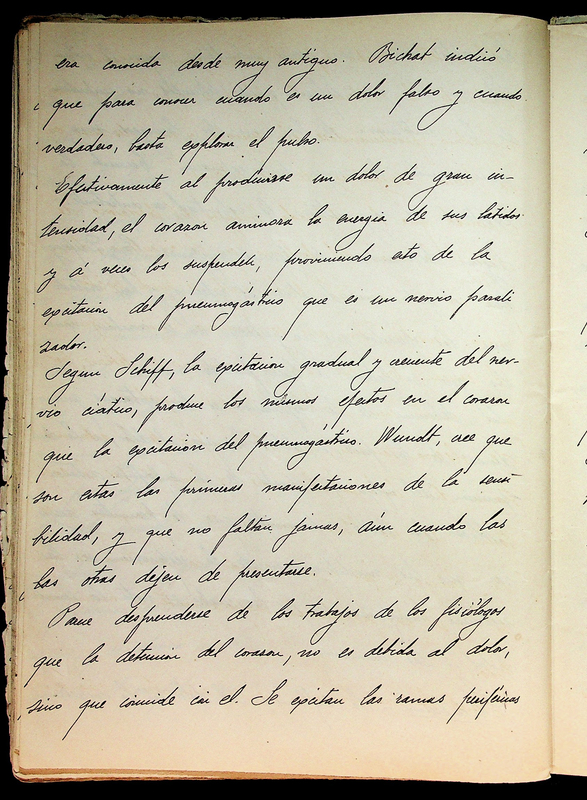 era conocida desde muy antiguo. Bichat indicó
que para conocer cuando es un dolor falso y cuando
verdadero, basta explorar el pulso.
Efectivamente al producirse un dolor de gran in-
tensidad, el corazon aminora la energia de sus latidos
y á veces los suspende, proviniendo esto de la
excitacion del pneumogástrico que es un nervio parali
zador.
Segun Schiff, la excitacion gradual y creciente del ner-
vio ciático, produce los mismos efectos en el corazon
que la excitacion del pneumogástrico. Wundt, cree que
son estas las primeras manifestaciones de la sensi
bilidad, y que no faltan jamas, aún cuando las
las otras dejen de presentarse.
Parece desprenderse de los trabajos de los fisiólogos
que la detencion del corazon, no es debida al dolor,
sino que coincide con el. Se excitan las ramas periféricas